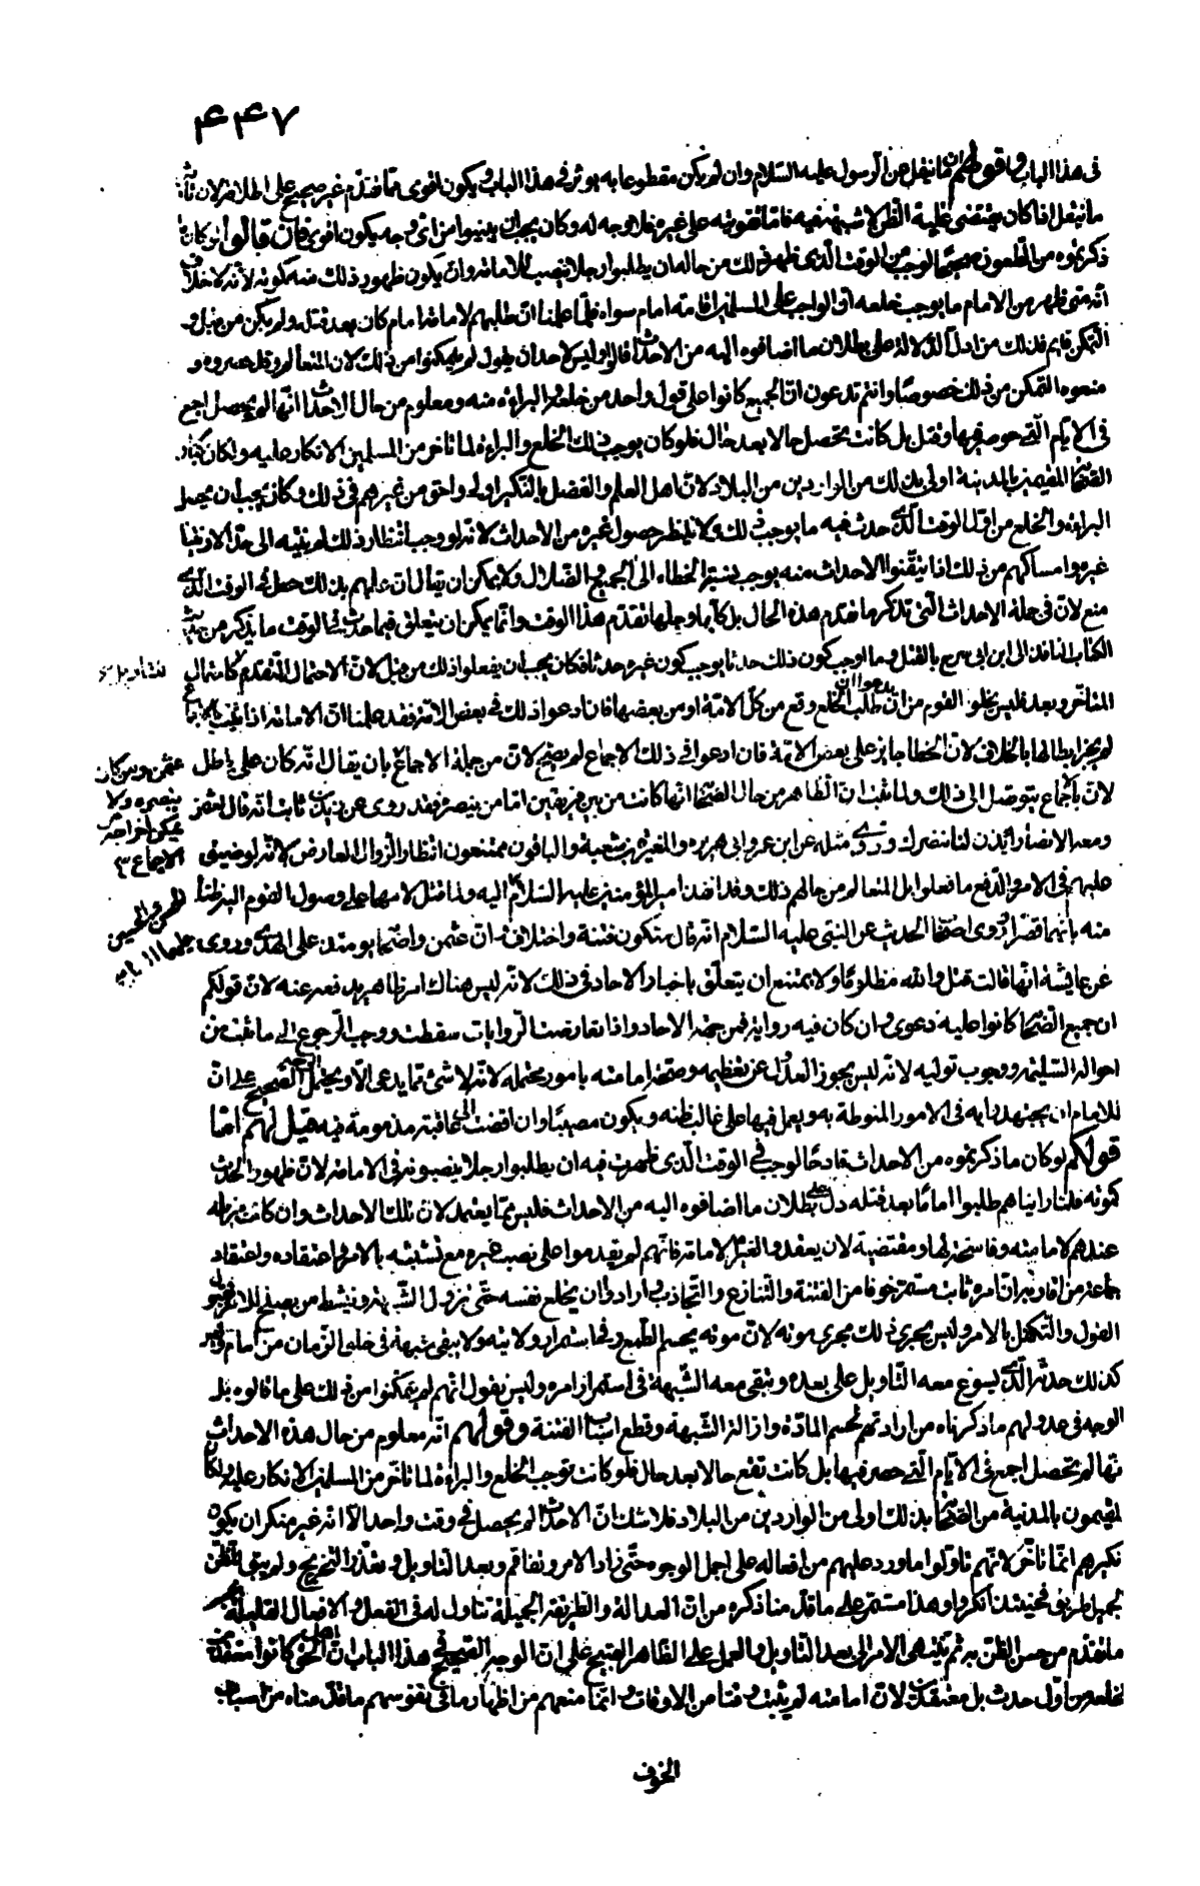 ۴۴۷
فى هذا الباب وقولهم ان ما ينقل عن الرسول عليه السلام وان لم يكن مقطوعا به يوثر فى هذا الباب ويكون اقوى مما تقدم غير صحيح على اطلاقه لان تأثير
ما ينقل اذا كان يقتضى غلبة الظن لا شبهة فيه فاما تقويته على غيره فلا وجه له وكان يجب ان يبينوا من اى وجه يكون اقوى فان قالوا لو كان ما
ذكرتموه من الطعون صحيحا لوجب من الوقت الذى ظهر ذلك من حاله ان يطلبوا رجلا ينصب للامامة وان يكون ظهور ذلك منه كموته لانه لا خلاف
انه متى ظهر من الامام ما يوجب خلعه ان الواجب على المسلمين اقامة امام سواه فلما علمنا ان طلبهم لامامة امام كان بعد قتله ولم يكن من قبل و
التمكن قايم فذلك من ادل الدلالة على بطلان ما اضافوه اليه من الاحداث قالوا وليس لاحد ان يقول لم يتمكنوا من ذلك لان المتعالم وقد حصروه و
منعوه التمكن من ذلك خصوصا وانتم تدعون ان الجميع كانوا على قول واحد من خلعه والبراءة منه ومعلوم من حال الاحداث انها لم يحصل اجمع
فى الايام التى حوصر فيها وقتل بل كانت تحصل حالا بعد حال فلو كان يوجب ذلك الخلع والبراءة لما تأخر من المسلمين الانكار عليه ولكان كبار
الصحابة المقيمين بالمدينة اولى بذلك من الواردين من البلاد لان اهل العلم والفضل بالنكير اولى واحق من غيرهم فى ذلك وكان يجب ان يحصل
البراءة والخلع من اول الوقت الذى حدث فيه ما يوجب ذلك ولا ينتظر حصول غيره من الاحداث لانه لو وجب انتظار ذلك لم ينته الى حد الا وينتظر
غيره وامساكهم من ذلك اذا تيقنوا الاحداث منه يوجب نسبة الخطاء الى الجميع والضلال ولا يمكن ان يقال ان علمهم بذلك حصل فى الوقت الذى
منع لان فى جملة الاحداث التى تذكر ما تقدم هذه الحال بل كلها وجلها تقدم هذا الوقت وانما يمكن ان يتعلق فيما حدث فى الوقت ما يذكر من حديث
الكتاب النافذ الى ابن ابى سرح بالقتل وما اوجب كون ذلك حدثا يوجب كون غيره حدثا فكان يجب ان يفعلوا ذلك من قبل لان الاحتمال المتقدم كامثال
المتأخر وبعد فليس يخلوا القوم من ان يدعوا ان طلب الخلع وقع من كل الامة او من بعضها فان ادعوا ذلك فى بعض الامة فقد علمنا ان الامامة اذا ثبتت بالاجماع
لم يجز ابطالها بالخلاف لان الخطا جايز على بعض الامة فان ادعوا فى ذلك الاجماع لم يصح لان من جملة الاجماع بان يقال انه كان على باطل
عثمن ومن كان ينصره ولا يمكن اخراجه من الاجماع ٣
لان بالاجماع يتوصل الى ذلك ولما يثبت ان الظاهر من حال الصحابة انها كانت من بين فريقين اما من ينصره فقد روى عن زيد بن ثابت انه قال لعثمن
ومعه الانصار ايذن لنا ننصرك وروى مثله عن ابن عمر وابى هريرة والمغيرة بن شعبة والباقون ممتنعون انتظارا لزوال العارض لانه لو ضيق
عليهم فى الامر والدفع ما قعدوا بل المتعالم من حالهم ذلك وقد انفذ امير المؤمنين عليه السلام اليه ولما قتل لامهما على وصول القوم اليه ظنا
الحسن والحسين عليهما السلام
منه بانهما قصرا وروى اصحاب الحديث عن النبى عليه السلام انه قال ستكون فتنة واختلاف وان عثمن واصحابه يومئذ على الهدى وروى
عن عايشة انها قالت قتل والله مظلوما ولا يمتنع ان يتعلق باخبار الآحاد فى ذلك لانه ليس هناك امر ظاهر يدفعه عنه لان قولكم
ان جميع الصحابة كانوا عليه دعوى وان كان فيه رواية فمن جهة الاحاد واذا تعارضت الروايات سقطت ووجب الرجوع الى ما ثبت من
احواله السليمة ووجوب توليه لانه ليس يجوز العدول عن تعظيمه وصحة امامته بامور محتملة لانه لا شئ مما يدعى الا ويحتمل الوجه الصحيح على ان
للامام ان يجتهد رايه فى الامور المنوطة به ويعمل فيها على غالب ظنه ويكون مصيبا وان افضت الى عاقبة مذمومة فيه قيل لهم اما
قولكم لو كان ما ذكرتموه من الاحداث قادحا لوجب فى الوقت الذى ظهرت فيه ان يطلبوا رجلا ينصبونه فى الامامة لان ظهور الحدث
كموته فلما رايناهم طلبوا اماما بعد قتله دل على بطلان ما اضافوه اليه من الاحداث فليس بما يعتمد لان تلك الاحداث وان كانت مزيلة
عندهم لامامته وفاسخة لها ومقتضية لان يعقدوا لغيره الامامة فانهم لم يقدموا على نصب غيره مع تشبثه بالامر واعتقاده واعتقاد
جماعة من اقاربه ان امره ثابت مستمر خوفا من الفتنة والتنازع والتجاذب وارادوا ان يخلع نفسه حتى تزول الشبهة وينشط من يصلح للامر لقبول
القول والتكفل بالامر وليس يجرى ذلك مجرى موته لان موته يحسم الطمع فى استمرار ولايته ولا يبقى شبهة فى خلو الزمان من امام وليس
كذلك حدثه الذى يسوغ معه التاويل على بعده ويبقى معه الشبهة فى استمرار امره وليس نقول انهم لم يتمكنوا من ذلك على ما قالوه بل
الوجه فى عدولهم ما ذكرناه من ارادتهم لحسم المادة وازالة الشبهة وقطع اسباب الفتنة وقولهم انه معلوم من حال هذه الاحداث
نها لم يحصل اجمع فى الايام التى حصر فيها بل كانت تقع حالا بعد حال فلو كانت توجب الخلع والبراءة لما تأخر من المسلمين الانكار عليه ولكان
لمقيمون بالمدينة من الصحابة بذلك اولى من الواردين من البلاد فلا شك ان الاحداث لم يحصل فى وقت واحد الا انه غير منكر ان يكون
نكيرهم انما تأخر لانهم تاولوا ما ورد عليهم من افعاله على اجمل الوجوه حتى زاد الامر وتفاقم وبعد التاويل وتعذر التخريج ولم يبق للظن
لجميل طريق فحينئذ انكروا وهذا مستمر على ما قدمنا ذكره من ان العدالة والطريقة الجميلة تتاول له فى الفعل والافعال القليلة بحسب
ما تقدم من حسن الظن به ثم ينتهى الامر الى بعد التاويل والعمل على الظاهر القبيح على ان الوجه الصحيح فى هذا الباب ان اهل الحق كانوا معتقدين
لخلعه من اول حدث بل معتقدين لان امامته لم يثبت وقتا من الاوقات وانما منعهم من اظهار ما فى نفوسهم ما قدمناه من اسباب
الخوف